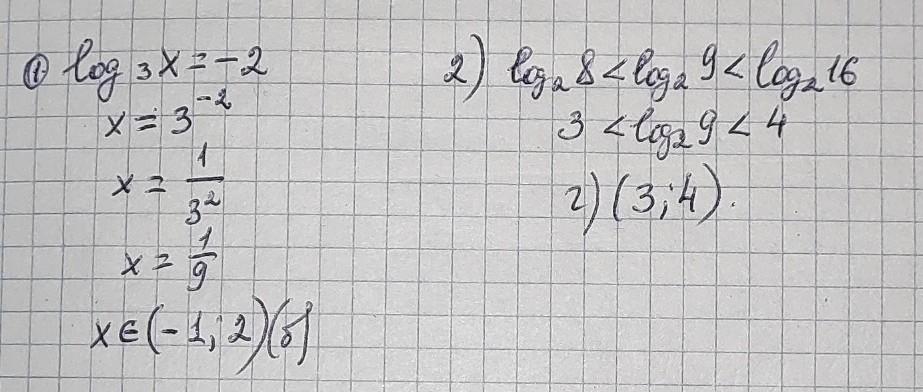 ① log₃x = -2
x = 3⁻²
x = 1/3²
x = 1/9
x ∈ (-1; 2) (б)
2) log₂8 < log₂9 < log₂16
3 < log₂9 < 4
г) (3; 4).